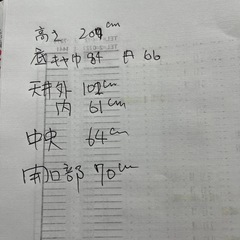 高さ 209cm
底キャ巾 84 内 66
天井外 102cm
内 61cm
中央 64cm
開口部 70cm